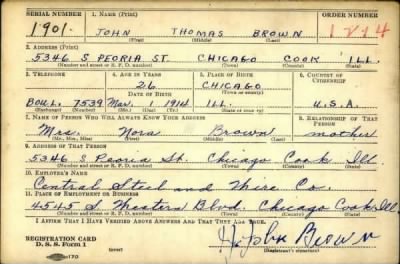 SERIAL NUMBER 1. NAME (Print) ORDER NUMBER
1901. JOHN THOMAS BROWN 1214
(First) (Middle) (Last)
2. ADDRESS (Print)
5346 S PEORIA ST. CHICAGO COOK ILL.
(Number and street or R. F. D. number) (Town) (County) (State)
3. TELEPHONE 4. AGE IN YEARS 5. PLACE OF BIRTH 6. COUNTRY OF CITIZENSHIP
26 CHICAGO
DATE OF BIRTH (Town or county)
BOUL. 7539 Mar. 1 1914 ILL. U.S.A.
(Exchange) (Number) (Mo.) (Day) (Yr.) (State or country)
7. NAME OF PERSON WHO WILL ALWAYS KNOW YOUR ADDRESS 8. RELATIONSHIP OF THAT PERSON
Mrs. Nora Brown mother
(Mr., Mrs., Miss) (First) (Middle) (Last)
9. ADDRESS OF THAT PERSON
5346 S Peoria St. Chicago Cook Ill.
(Number and street or R. F. D. number) (Town) (County) (State)
10. EMPLOYER'S NAME
Central Steel and Wire Co.
11. PLACE OF EMPLOYMENT OR BUSINESS
4545 S Western Blvd. Chicago Cook Ill.
(Number and street or R. F. D. number) (Town) (County) (State)
I AFFIRM THAT I HAVE VERIFIED ABOVE ANSWERS AND THAT THEY ARE TRUE.
REGISTRATION CARD
D. S. S. Form 1 John Brown
(Registrant's signature)